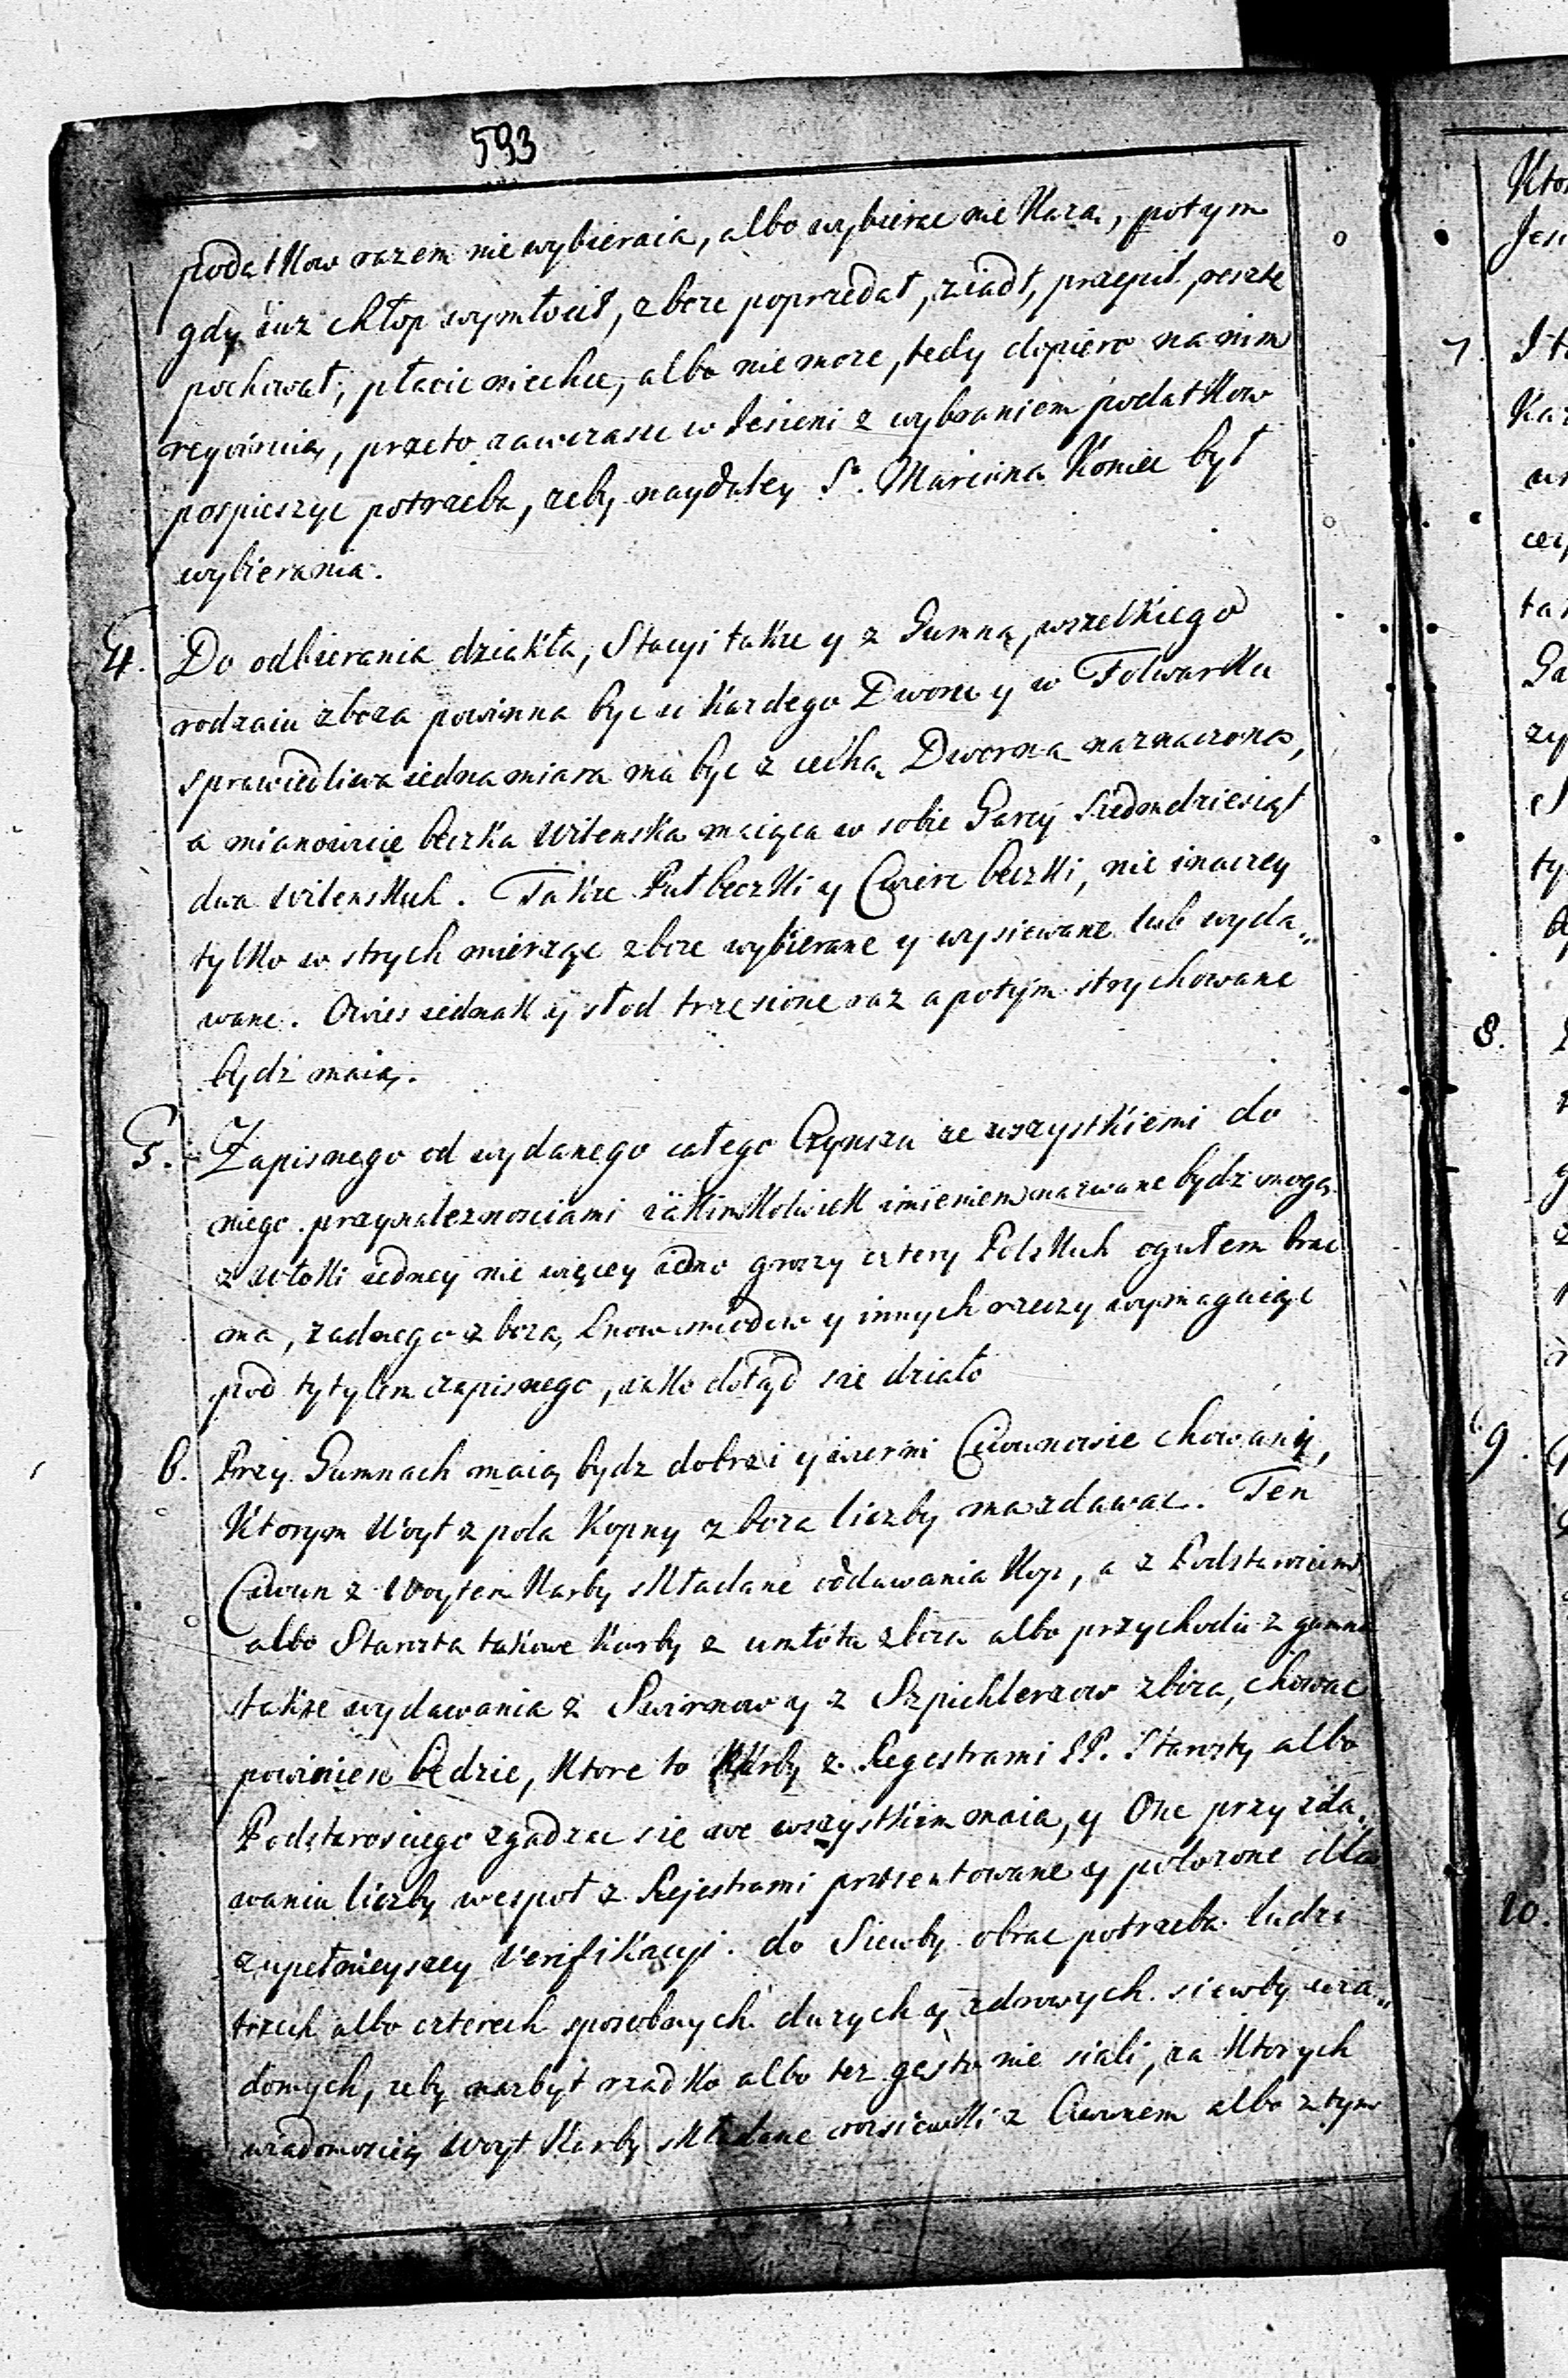 593
podatkow razem nie wybieraią, albo wybierac nie każą, potym
gdy iuz chłop wymłocił, zboze poprzedał, ziadł, przepił, resztę
pochował, płacic niechce, albo nie moze, tedy dopiero na nim
, przeto zawczasu w Jesieni z wybraniem podatkow
pospieszyc potrzeba, zeby naydaley S. Marcina Koniec był
wybierania.
4. Do odbierania dziakła, Stacyi takze y z Gumna, wszelkiego
rodzaiu zboza powinna byc u kazdego Dworu y w Folwarku
sprawiedliwa iedna miara ma byc z cechą Dworną naznaczona,
a mianowicie beczka Wilenska maiąca w sobie Garcy Siedmdziesiąt
dwa Wilenskich. Takze Puł beczki y Cwierc beczki, nie inaczey
tylko w strych mierząc zboze wybierane y wysiewane lub wyda„
wane. Owies iednak y słod trzęsione raz a potym strychowane
bydz maią.
5. Zapisnego od wydanego całego Czynszu ze wszystkiemi do
niego przynaleznosciami iakimkolwiek imieniem nazwane bydz mogą
z włoki iedney nie więcey iedno groszy cztery Polskich ogułem brac
ma, zadnego zboza, Lnow miodow y innych rzeczy wymagaiąc
pod tytylem zapisnego, iako dotąd się działo
6. Przy Gumnach maią bydz dobrzi y wierni Ciwunowie chowani,
Ktorym Woyt z pola Kopny zboza liczby ma zdawac. Ten
Ciwun z Woytem Karby składane oddawania Kop, a z Podstarościm
albo Starosta takowe Karby z umłotu zboza albo przychodu z gumna
takze wydawania z Swirnow y z Szpichlerzow zboza, chowac
powinien będzie, Ktore to Karby z Regestrami PP. Starosty albo
Podstarosciego zgadzac się we wszystkim maia, y One przy zda„
waniu liczby wespoł z Rejestrami prezentowane y połozone dla
zupełnieyszey Verifikacyi. do Siewby obrac potrzeba ludzi
trzech albo czterech sposobnych duzych y zdrowych siewby wia„
domych, zeby nazbyt rzadko albo tez gęsto nie siali, za Ktorych
wiadomoscią Woyt Karby składane wysiewki z Ciwunem albo z tym